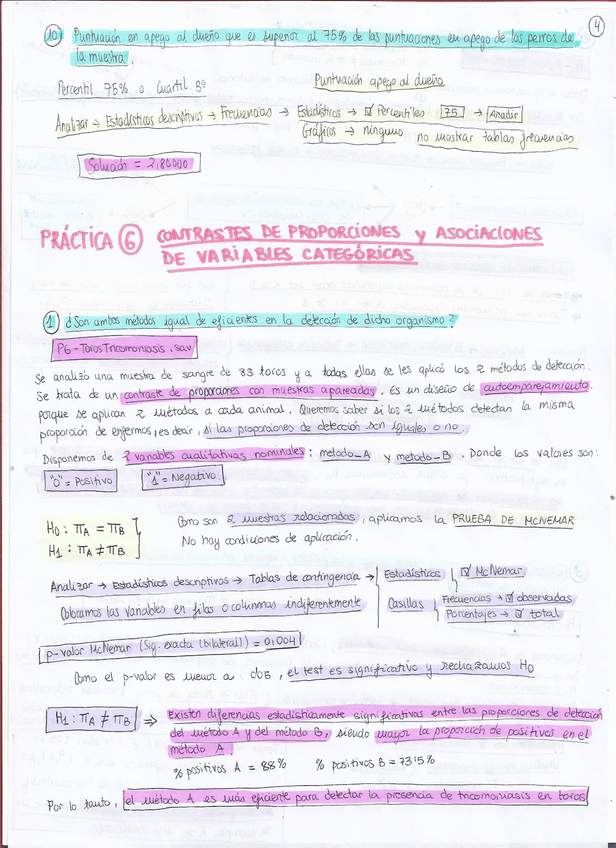 4
10) Puntuación en apego al dueño que es superior al 75% de las puntuaciones en apego de los perros de
la muestra.
Percentil 75% o Cuartil 3º
Puntuación apego al dueño
Analizar → Estadísticos descriptivos → Frecuencias → Estadísticos → ☑ Percentiles 75 → Añadir
Gráficos → ninguno no mostrar tablas frecuencias
Solución = 2,80000
PRÁCTICA 6 CONTRASTES DE PROPORCIONES y ASOCIACIONES
DE VARIABLES CATEGÓRICAS
1) ¿Son ambos métodos igual de eficientes en la detección de dicho organismo?
P6-TorosTricomoniasis.sav
Se analizó una muestra de sangre de 83 toros y a todas ellas se les aplicó los 2 métodos de detección.
Se trata de un contraste de proporciones con muestras apareadas. Es un diseño de autoemparejamiento.
porque se aplican 2 métodos a cada animal. Queremos saber si los 2 métodos detectan la misma
proporción de enfermos, es decir, si las proporciones de detección son iguales o no.
Disponemos de 2 variables cualitativas nominales: metodo_A y metodo_B. Donde los valores son:
"0" = Positivo "1" = Negativo
H0: πA = πB
H1: πA ≠ πB
Como son 2 muestras relacionadas, aplicamos la PRUEBA DE MCNEMAR
No hay condiciones de aplicación.
Analizar → Estadísticos descriptivos → Tablas de contingencia → Estadísticos ☑ McNemar
Colocamos las variables en filas o columnas indiferentemente
Casillas Frecuencias → ☑ observadas
Porcentajes → ☑ total
p-valor McNemar (Sig. exacta (bilateral)) = 0,004
Como el p-valor es menor a 0,05, el test es significativo y rechazamos H0
H1: πA ≠ πB ⇒ Existen diferencias estadísticamente significativas entre las proporciones de detección
del método A y del método B, siendo mayor la proporción de positivos en el
método A
% positivos A = 88% % positivos B = 73,5%
Por lo tanto, el método A es más eficiente para detectar la presencia de tricomoniasis en toros